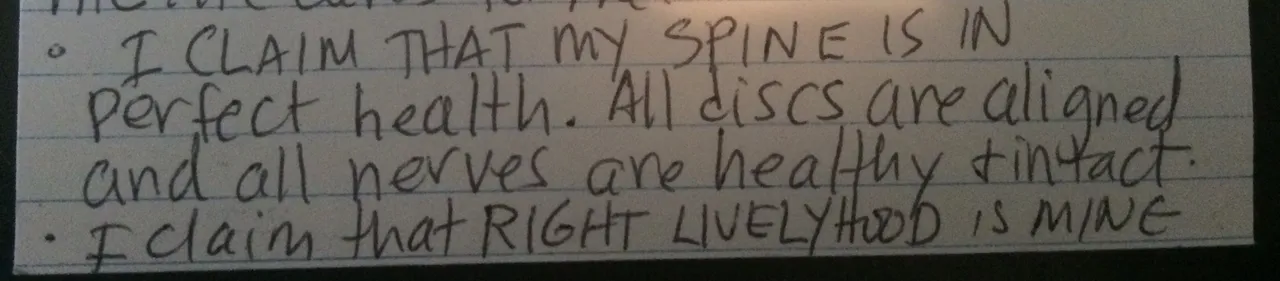 • I CLAIM THAT my SPINE IS IN
perfect health. All discs are aligned
and all nerves are healthy + intact.
• I claim that RIGHT LIVELYHOOD IS MINE